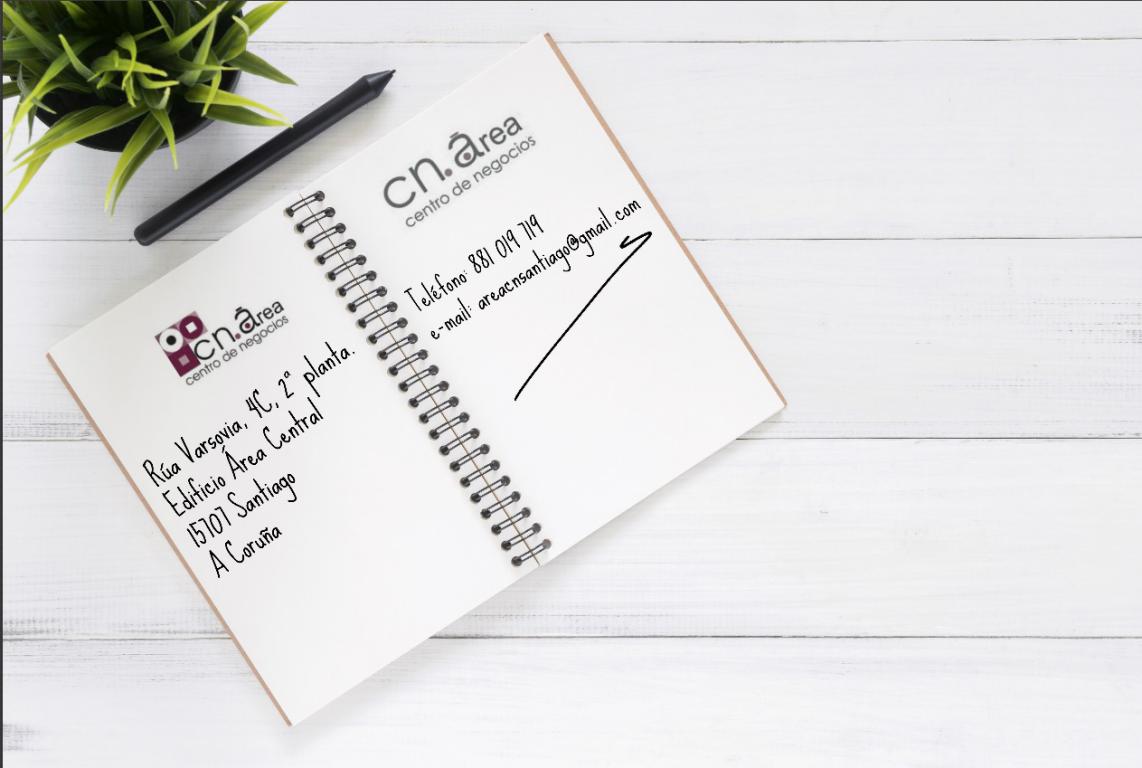 cn.área
centro de negocios
Rúa Varsovia, 4C, 2ª planta.
Edificio Área Central
15707 Santiago
A Coruña
cn.área
centro de negocios
Teléfono: 881 019 719
e-mail: areacnsantiago@gmail.com